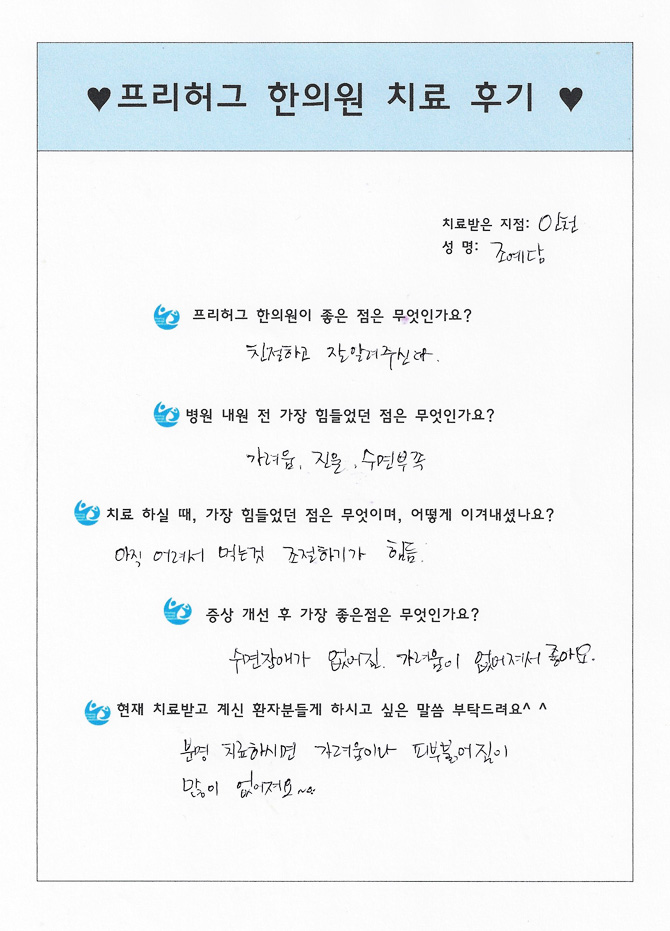 ♥프리허그 한의원 치료 후기 ♥
치료받은 지점: 인천
성 명: 조예담
프리허그 한의원이 좋은 점은 무엇인가요?
친절하고 잘알려주신다.
병원 내원 전 가장 힘들었던 점은 무엇인가요?
가려움, 진물, 수면부족
치료 하실 때, 가장 힘들었던 점은 무엇이며, 어떻게 이겨내셨나요?
아직 어려서 먹는것 조절하기가 힘듬.
증상 개선 후 가장 좋은점은 무엇인가요?
수면장애가 없어짐. 가려움이 없어져서 좋아요.
현재 치료받고 계신 환자분들게 하시고 싶은 말씀 부탁드려요^ ^
분명 치료하시면 가려움이나 피부붉어짐이
많이 없어져요~